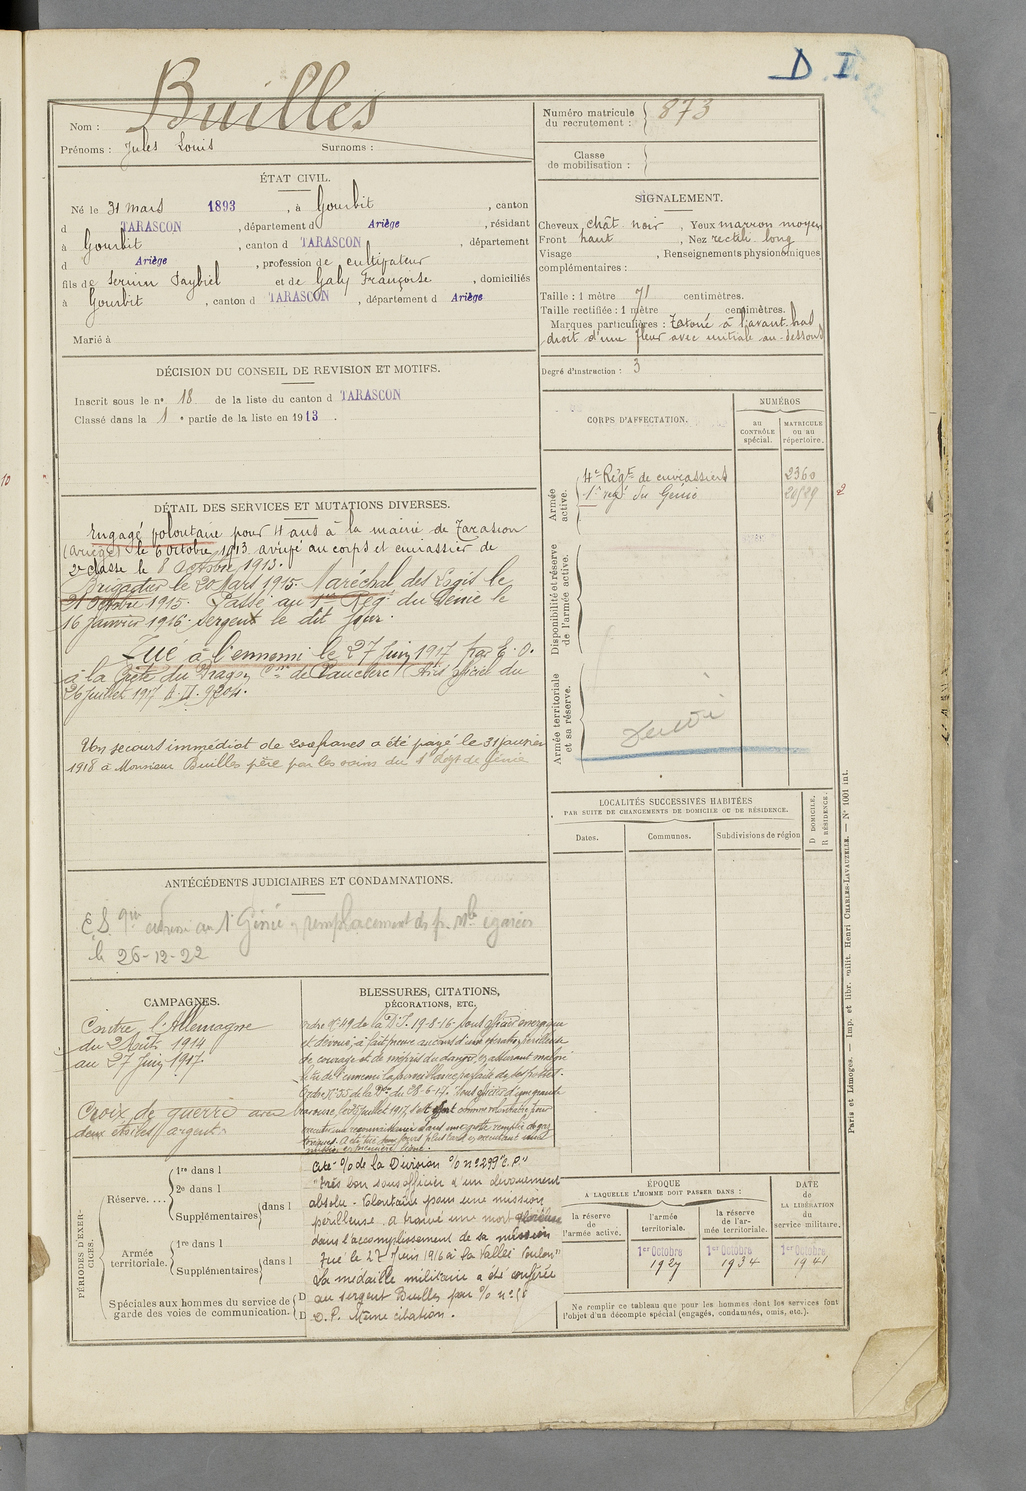 D I
Builles
Nom :
Prénoms : Jules Louis Surnoms :
Numéro matricule du recrutement : 873
Classe de mobilisation :
ÉTAT CIVIL.
Né le 31 mars 1893, à Gourbit, canton
d TARASCON, département d Ariège, résidant
à Gourbit, canton d TARASCON, département
d Ariège, profession de cultivateur
fils de Sernin Faybiel et de Galy Françoise, domiciliés
à Gourbit, canton d TARASCON, département d Ariège
Marié à
SIGNALEMENT.
Cheveux chât noir, Yeux marron moyen
Front haut, Nez rectil. long
Visage , Renseignements physionomiques
complémentaires :
Taille : 1 mètre 71 centimètres.
Taille rectifiée : 1 mètre centimètres.
Marques particulières : Tatoué à l'avant-bras
droit d'une fleur avec initiale au-dessous
Degré d'instruction : 3
DÉCISION DU CONSEIL DE REVISION ET MOTIFS.
Inscrit sous le n° 18 de la liste du canton d TARASCON
Classé dans la 1e partie de la liste en 1913.
CORPS D'AFFECTATION.
NUMÉROS
au CONTRÔLE spécial.
MATRICULE ou au répertoire.
Armée active.
4e Régt de cuirassiers 2360
1er régt du Génie 20529
2
10
Disponibilité et réserve de l'armée active.
Armée territoriale et sa réserve.
DÉTAIL DES SERVICES ET MUTATIONS DIVERSES.
Engagé volontaire pour 4 ans à la mairie de Tarascon
(Ariège) le 6 octobre 1913 arrivé au corps et cuirassier de
2e classe le 8 octobre 1913.
Brigadier le 20 Mars 1915. Maréchal des Logis le
21 Octobre 1915. Passé au 1er Rég. du Génie le
16 Janvier 1916. Sergent le dit jour.
Tué à l'ennemi le 27 Juin 1917 par E. O.
à la Grotte du Dragon, de Vauclerc (Avis officiel du
26 juillet 1917
Un secours immédiat de 200 francs a été payé le 31 janvier
1918 à Monsieur Builles père par les soins du 1er Régt de génie
LOCALITÉS SUCCESSIVES HABITÉES
PAR SUITE DE CHANGEMENTS DE DOMICILE OU DE RÉSIDENCE.
Dates.
Communes.
Subdivisions de région
D DOMICILE. R RÉSIDENCE.
ANTÉCÉDENTS JUDICIAIRES ET CONDAMNATIONS.
E.S. au 1er Génie en remplacement de égarées
le 26-12-22
CAMPAGNES.
Contre l'Allemagne
du 2 Août 1914
au 27 Juin 1917.
Croix de guerre avec
deux étoiles argent
BLESSURES, CITATIONS,
DÉCORATIONS, ETC.
Ordre N° 49 de la D.I. 19-8-16. Sous officier énergique
et dévoué, a fait preuve au cours d'une opération périlleuse
de courage et de mépris du danger, en assurant malgré
le tir de l'ennemi la surveillance parfaite de
Ordre N° 55 de la du 28-6-17. Sous officier d'une grande
bravoure, s'est offert comme volontaire pour
exécuter une reconnaissance dans une grotte remplie de gaz
toxiques. A été tué jours plus tard en exécutant une
mission en première ligne.
Cité % de la Division % n° 299 "E.P."
"Très bon sous officier d'un dévouement
absolu. Volontaire pour une mission
périlleuse. a trouvé une mort glorieuse
dans l'accomplissement de sa mission
Tué le 27 Juin 1916 à la Vallée Foulon"
La médaille militaire a été conférée
au sergent Builles par %
D.P. Même citation.
PÉRIODES D'EXERCICES.
Réserve....
1re dans l
2e dans l
Supplémentaires dans l
Armée territoriale.
1re dans l
Supplémentaires dans l
Spéciales aux hommes du service de
garde des voies de communication.
D
D
ÉPOQUE
A LAQUELLE L'HOMME DOIT PASSER DANS :
la réserve de l'armée active.
l'armée territoriale.
la réserve de l'armée territoriale.
DATE DE LA LIBÉRATION du service militaire.
1er Octobre 1927
1er Octobre 1934
1er Octobre 1941
Ne remplir ce tableau que pour les hommes dont les services font
l'objet d'un décompte spécial (engagés, condamnés, omis, etc.).
Paris et Limoges. — Imp. et libr. milit. Henri CHARLES-LAVAUZELLE. — N° 1001 int.